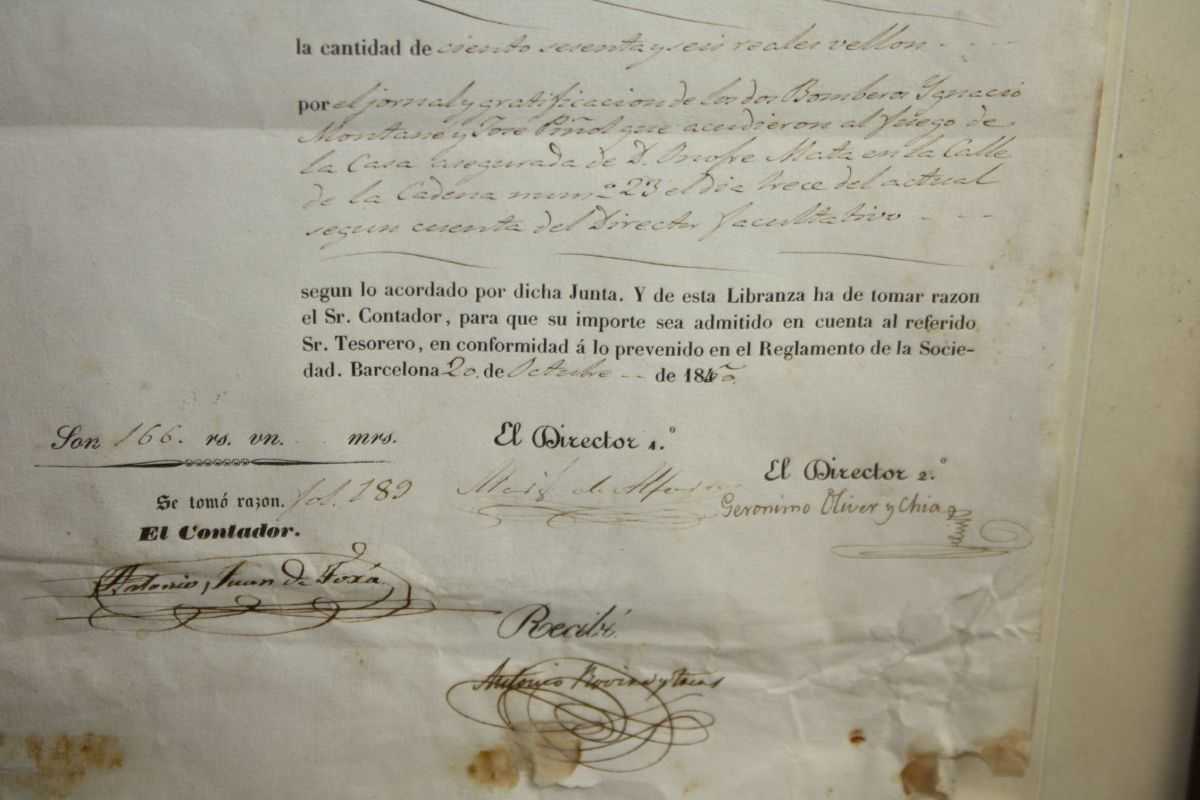 la cantidad de ciento sesenta y seis reales vellon
por el jornal y gratificacion de los dos Bomberos Ygnacio
Montané y José Piñol que acudieron al fuego de
la Casa asegurada de D. Onofre Mata en la Calle
de la Cadena numº 23 el dia trece del actual
segun cuenta del Director facultativo
segun lo acordado por dicha Junta. Y de esta Libranza ha de tomar razon
el Sr. Contador, para que su importe sea admitido en cuenta al referido
Sr. Tesorero, en conformidad á lo prevenido en el Reglamento de la Socie-
dad. Barcelona 20 de Octubre de 18
Son 166. rs. vn. mrs.
El Director 1.º
El Director 2.º
Se tomó razon. fol. 189
Geronimo Oliver y Chia
El Contador.
Antonio Juan de Foxá
Recibí
Antonio